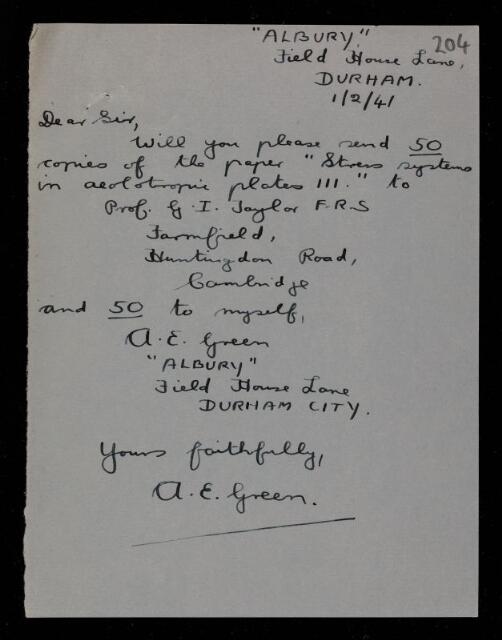 "ALBURY."
204
Field House Lane,
DURHAM.
1/2/41
Dear Sir,
Will you please send 50
copies of the paper "Stress systems
in aeolotropic plates III." to
Prof. G. I. Taylor F.R.S
Farmfield,
Huntingdon Road,
Cambridge
and 50 to myself,
A. E. Green
"ALBURY"
Field House Lane
DURHAM CITY.
Yours faithfully,
A. E. Green.